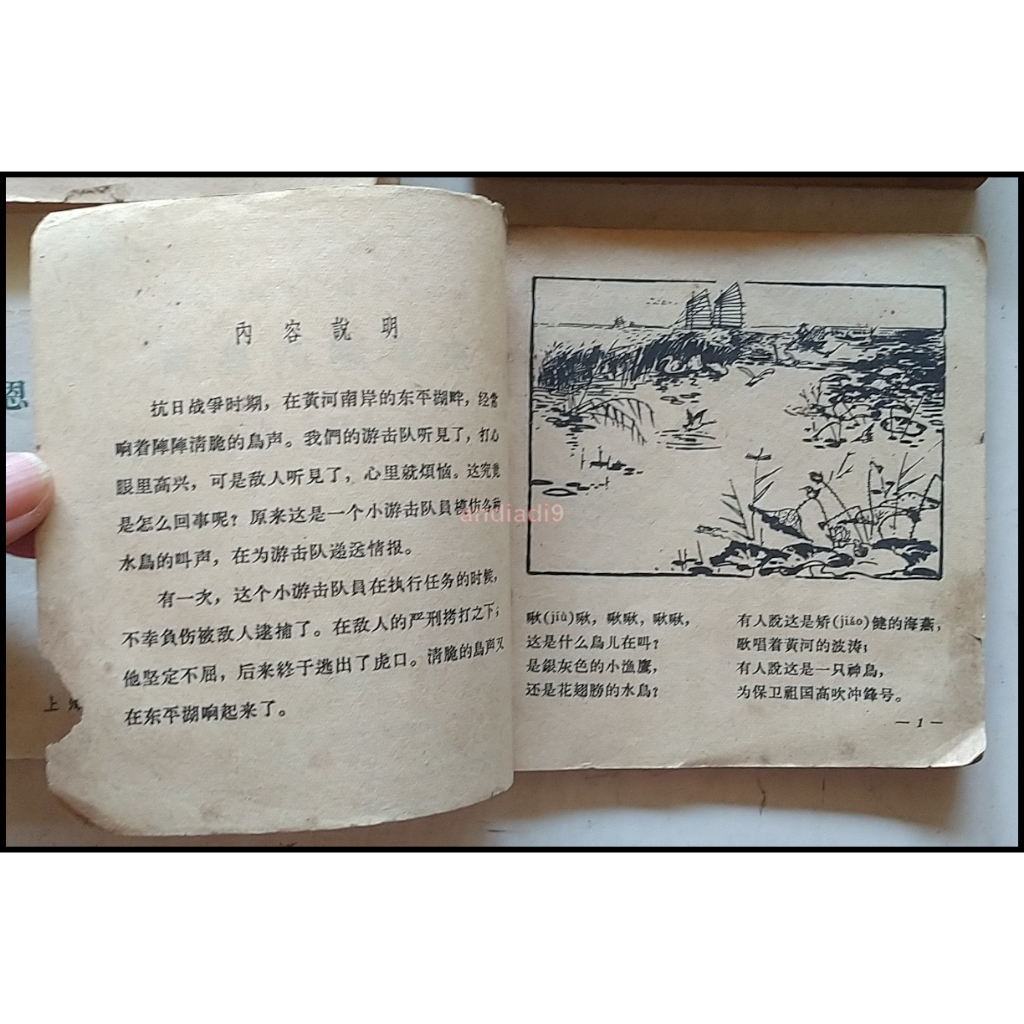 內容說明
抗日战爭时期，在黃河南岸的东平湖畔，经常
响着陣陣清脆的鳥声。我們的游击队听見了，打心
眼里高兴，可是敌人听見了，心里就煩恼。这究竟
是怎么回事呢？原来这是一个小游击队員模仿各种
水鳥的叫声，在为游击队递送情报。
有一次，这个小游击队員在执行任务的时候，
不幸負伤被敌人逮捕了。在敌人的严刑拷打之下，
他坚定不屈，后来終于逃出了虎口。清脆的鳥声又
在东平湖响起来了。
恩
上
andiadi9
啾(jiū)啾，啾啾，啾啾，
这是什么鳥儿在叫？
是銀灰色的小漁鷹，
还是花翅膀的水鳥？
有人說这是矫(jiǎo)健的海燕，
歌唱着黃河的波涛；
有人說这是一只神鳥，
为保卫祖国高吹冲鋒号。
— 1 —